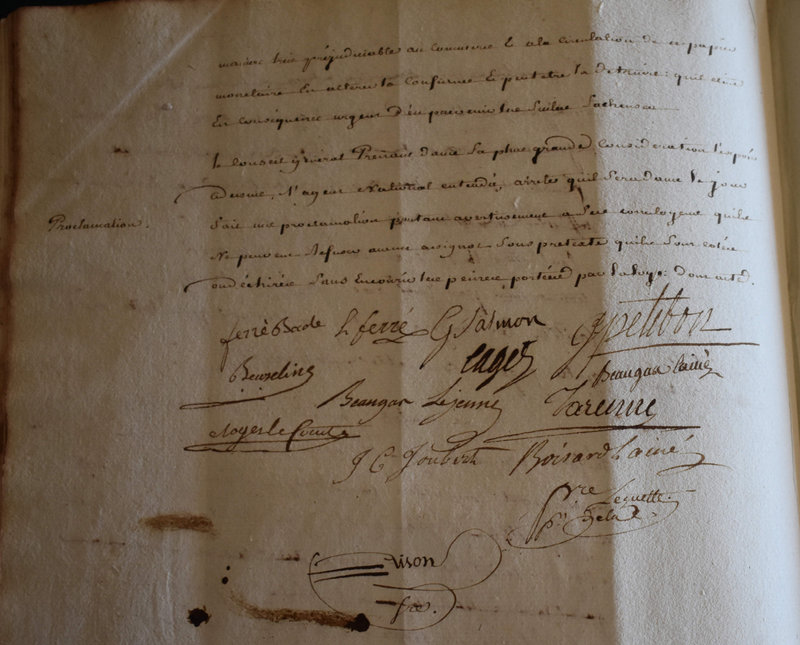 mesure très préjudiciable au commerce & a la circulation de ce papier
monetaire En altere la confiance & peut etre la detruire; quil est
En consequence urgent d'en prevenir les suites facheuses
Le conseil général Prenant dans sa plus grande consideration l'exposé
Proclamation.
cidessus, l'agent National entendu, arrete quil sera dans le jour
fait une proclamation portant avertissement a ses concitoyens quils
Ne peuvent Refuser aucun assignat sous pretexte quils sont
ou déchirés sans Encourir les peines portées par la loy: dont acte.
ferré Bade L ferré G Salmon Petitbon
Beuselin caget Beaugas l'ainé
Beaugas Lejeune Varenne
Noyer le Comte
J C Joubert Boisard l'ainé
Pre Lequette
vison
Gre.